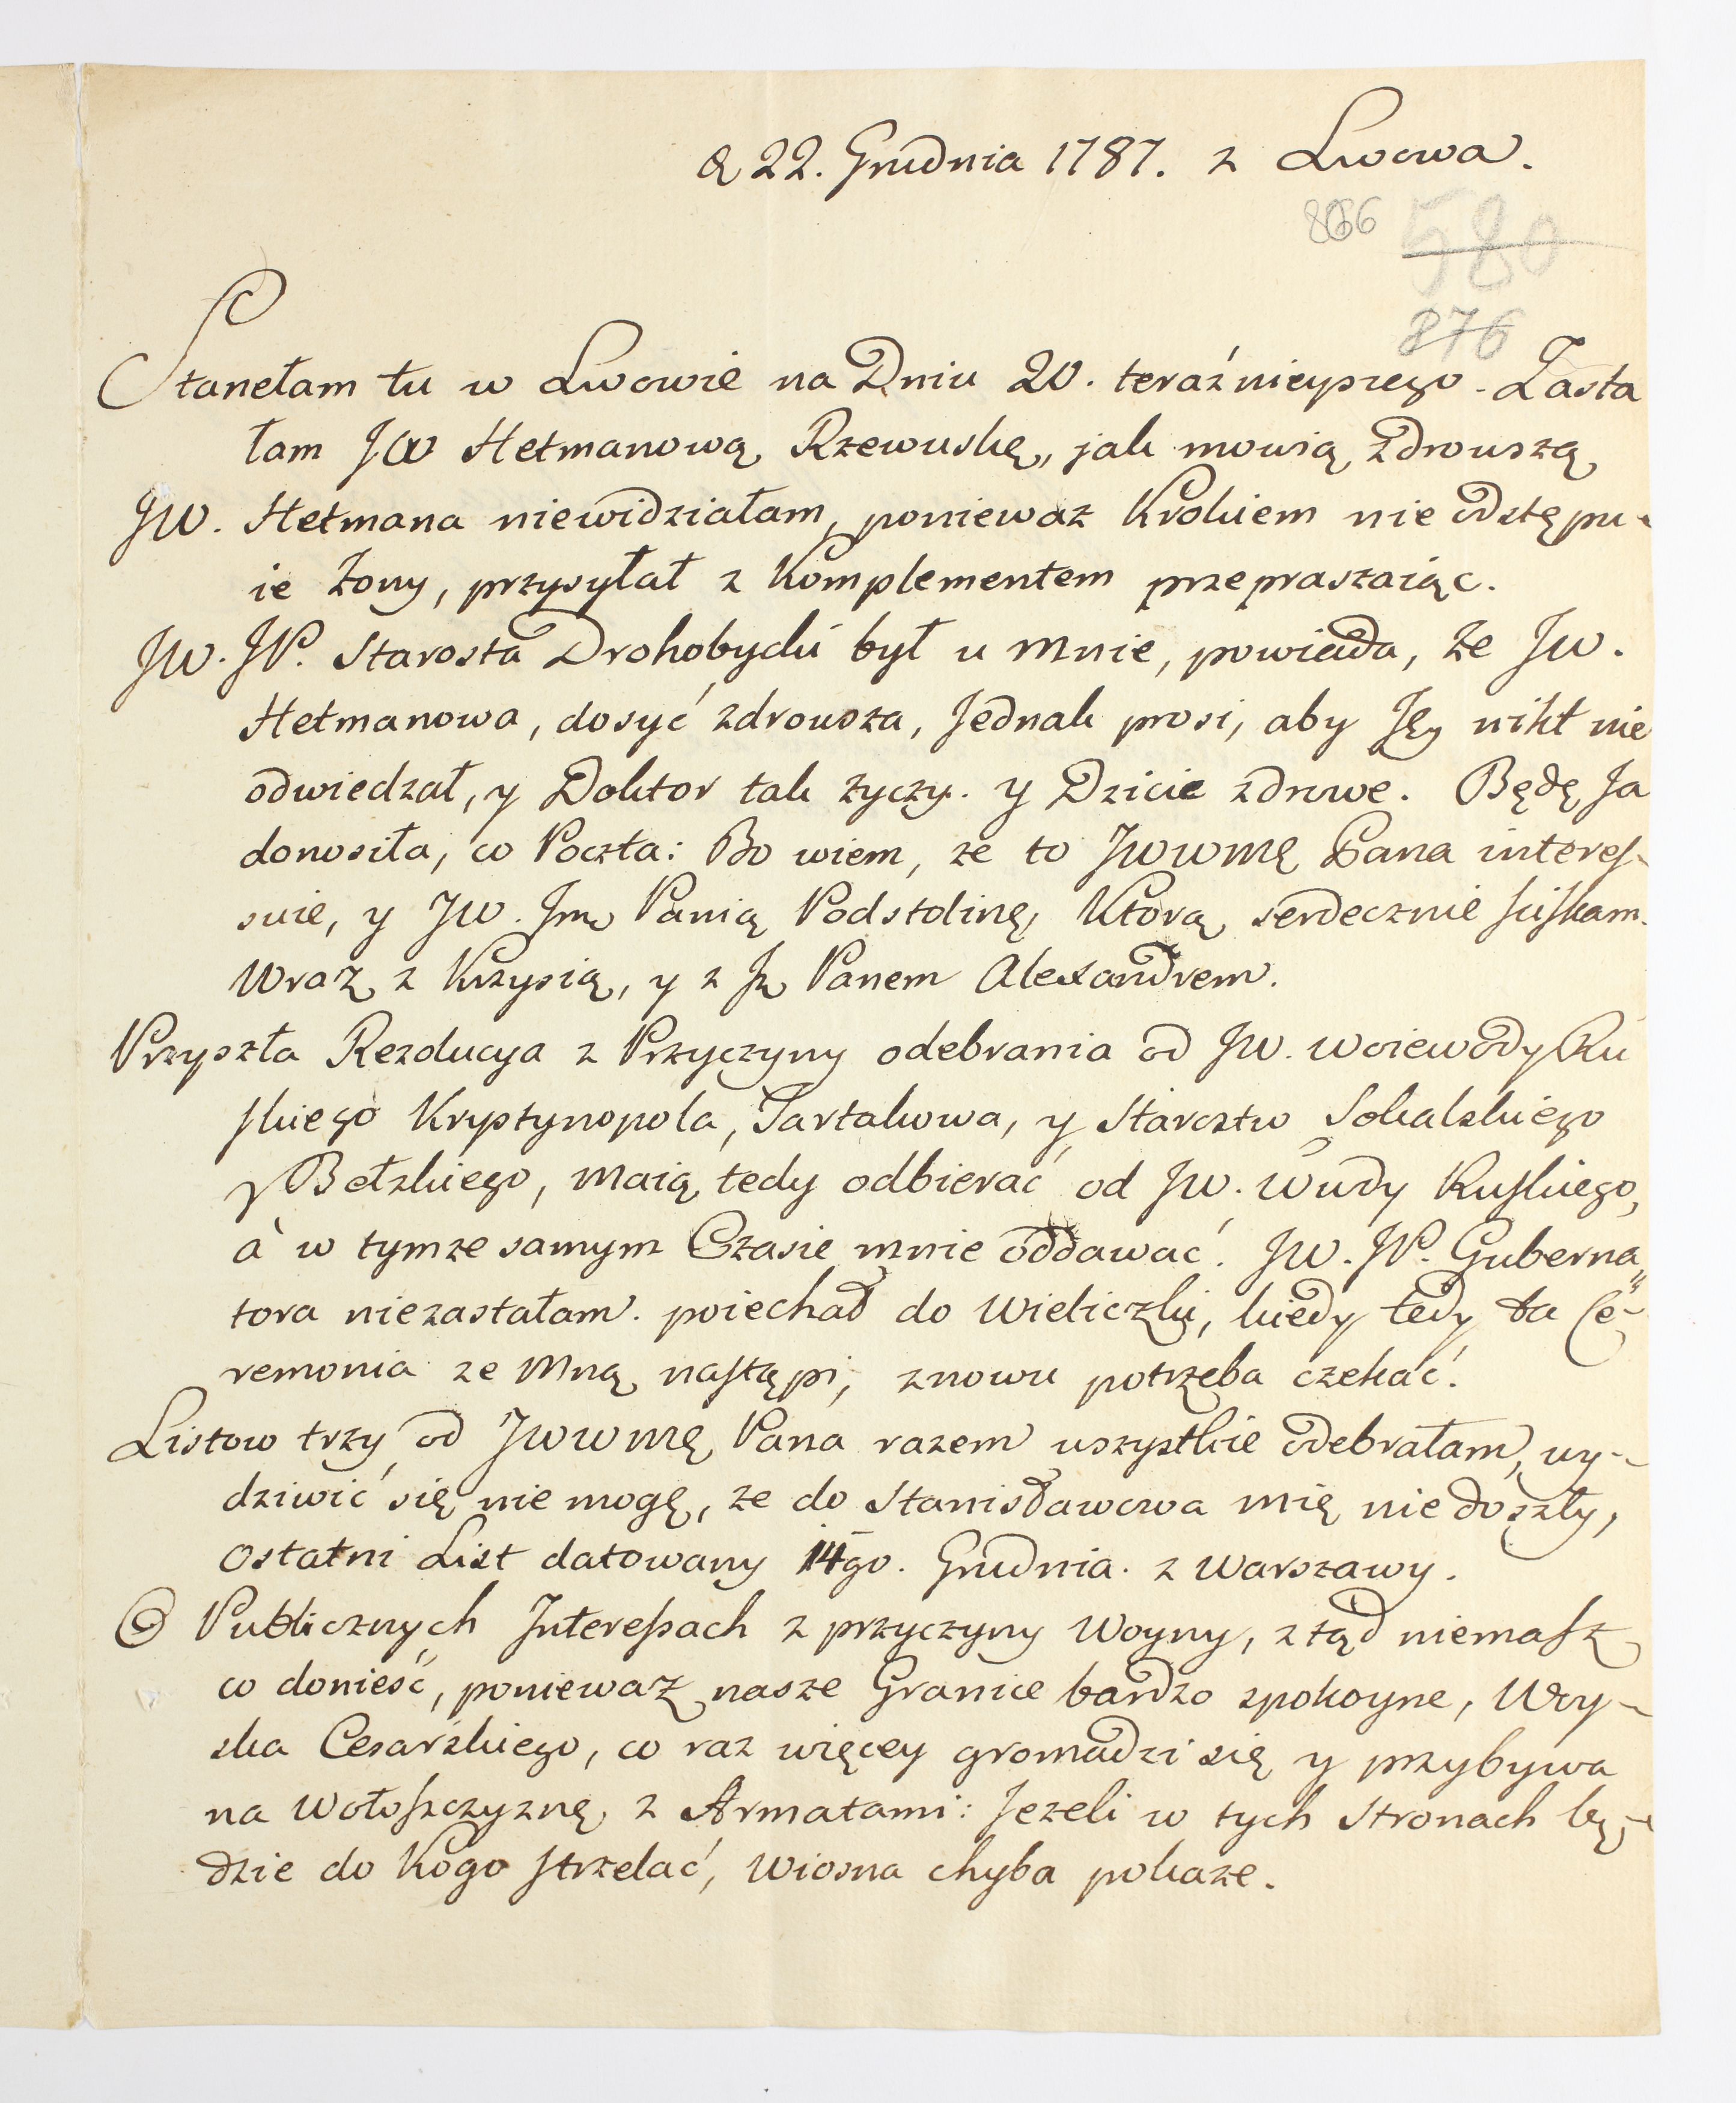 d 22. Grudnia 1787. z Lwowa.
866 580
876
Stanełam tu w Lwowie na Dniu 20. teraźnieyszego. Zasta
łam JW Hetmanową Rzewuskę, jak mowią zdrowszą
JW. Hetmana niewidziałam, poniewaz Krokiem nie odstępu-
ie Zony, przysyłał z Komplementem przepraszaiąc.
JW. JP. Starosta Drohobycki był u mnie, powiada, ze JW.
Hetmanowa, dosyć zdrowsza, Jednak prosi, aby Jey nikt nie
odwiedzał, y Doktor tak zyczy. y Dzicie zdrowe. Będę Ja
donosiła, co Poczta: Bo wiem, ze to JWWMę Pana interes-
suie, y JW. Jm Panią Podstolinę, Ktorą serdecznie sciskam.
Wraz z Krzysią, y z Jm Panem Alexandrem.
Przyszła Rezolucya z Przyczyny odebrania od JW. Woiewody Ru
skiego Krystynopola, Tartakowa, y Starostw Sokalskiego
y Bełzkiego, maią tedy odbierać od JW. Wudy Ruskiego,
à w tymze samym Czasie mnie oddawać. JW. JP. Guberna„
tora niezastałam. poiechał do Wieliczki, kiedy tedy ta Ce-
remonia ze Mną nastąpi, znowu potrzeba czekać.
Listow trzy od JWWMę Pana razem wszystkie odebrałam, wy-
dziwić się nie mogę, ze do Stanisławowa mię nie doszły,
Ostatni List datowany 14go. Grudnia. z Warszawy.
O Publicznych Interessach z przyczyny Woyny, ztąd niemasz
co donieść, poniewaz nasze Granice bardzo spokoyne, Woy-
ska Cesarskiego, co raz więcey gromadzi się y przybywa
na Wołoszczyznę z Armatami: Jezeli w tych Stronach bę-
dzie do Kogo strzelać, Wiosna chyba pokaze.